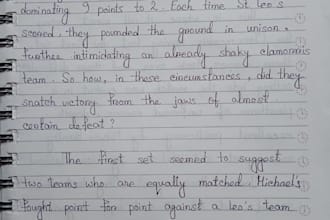 dominating 9 points to 2. Each time St leo's
scored, they pounded the ground in unison,
further intimidating an already shaky clamonnis
team. So how, in these circumstances, did they
snatch victory from the jaws of almost
certain defeat?
The first set seemed to suggest
two teams who are equally matched. Michael's
fought point for point against a leo's team